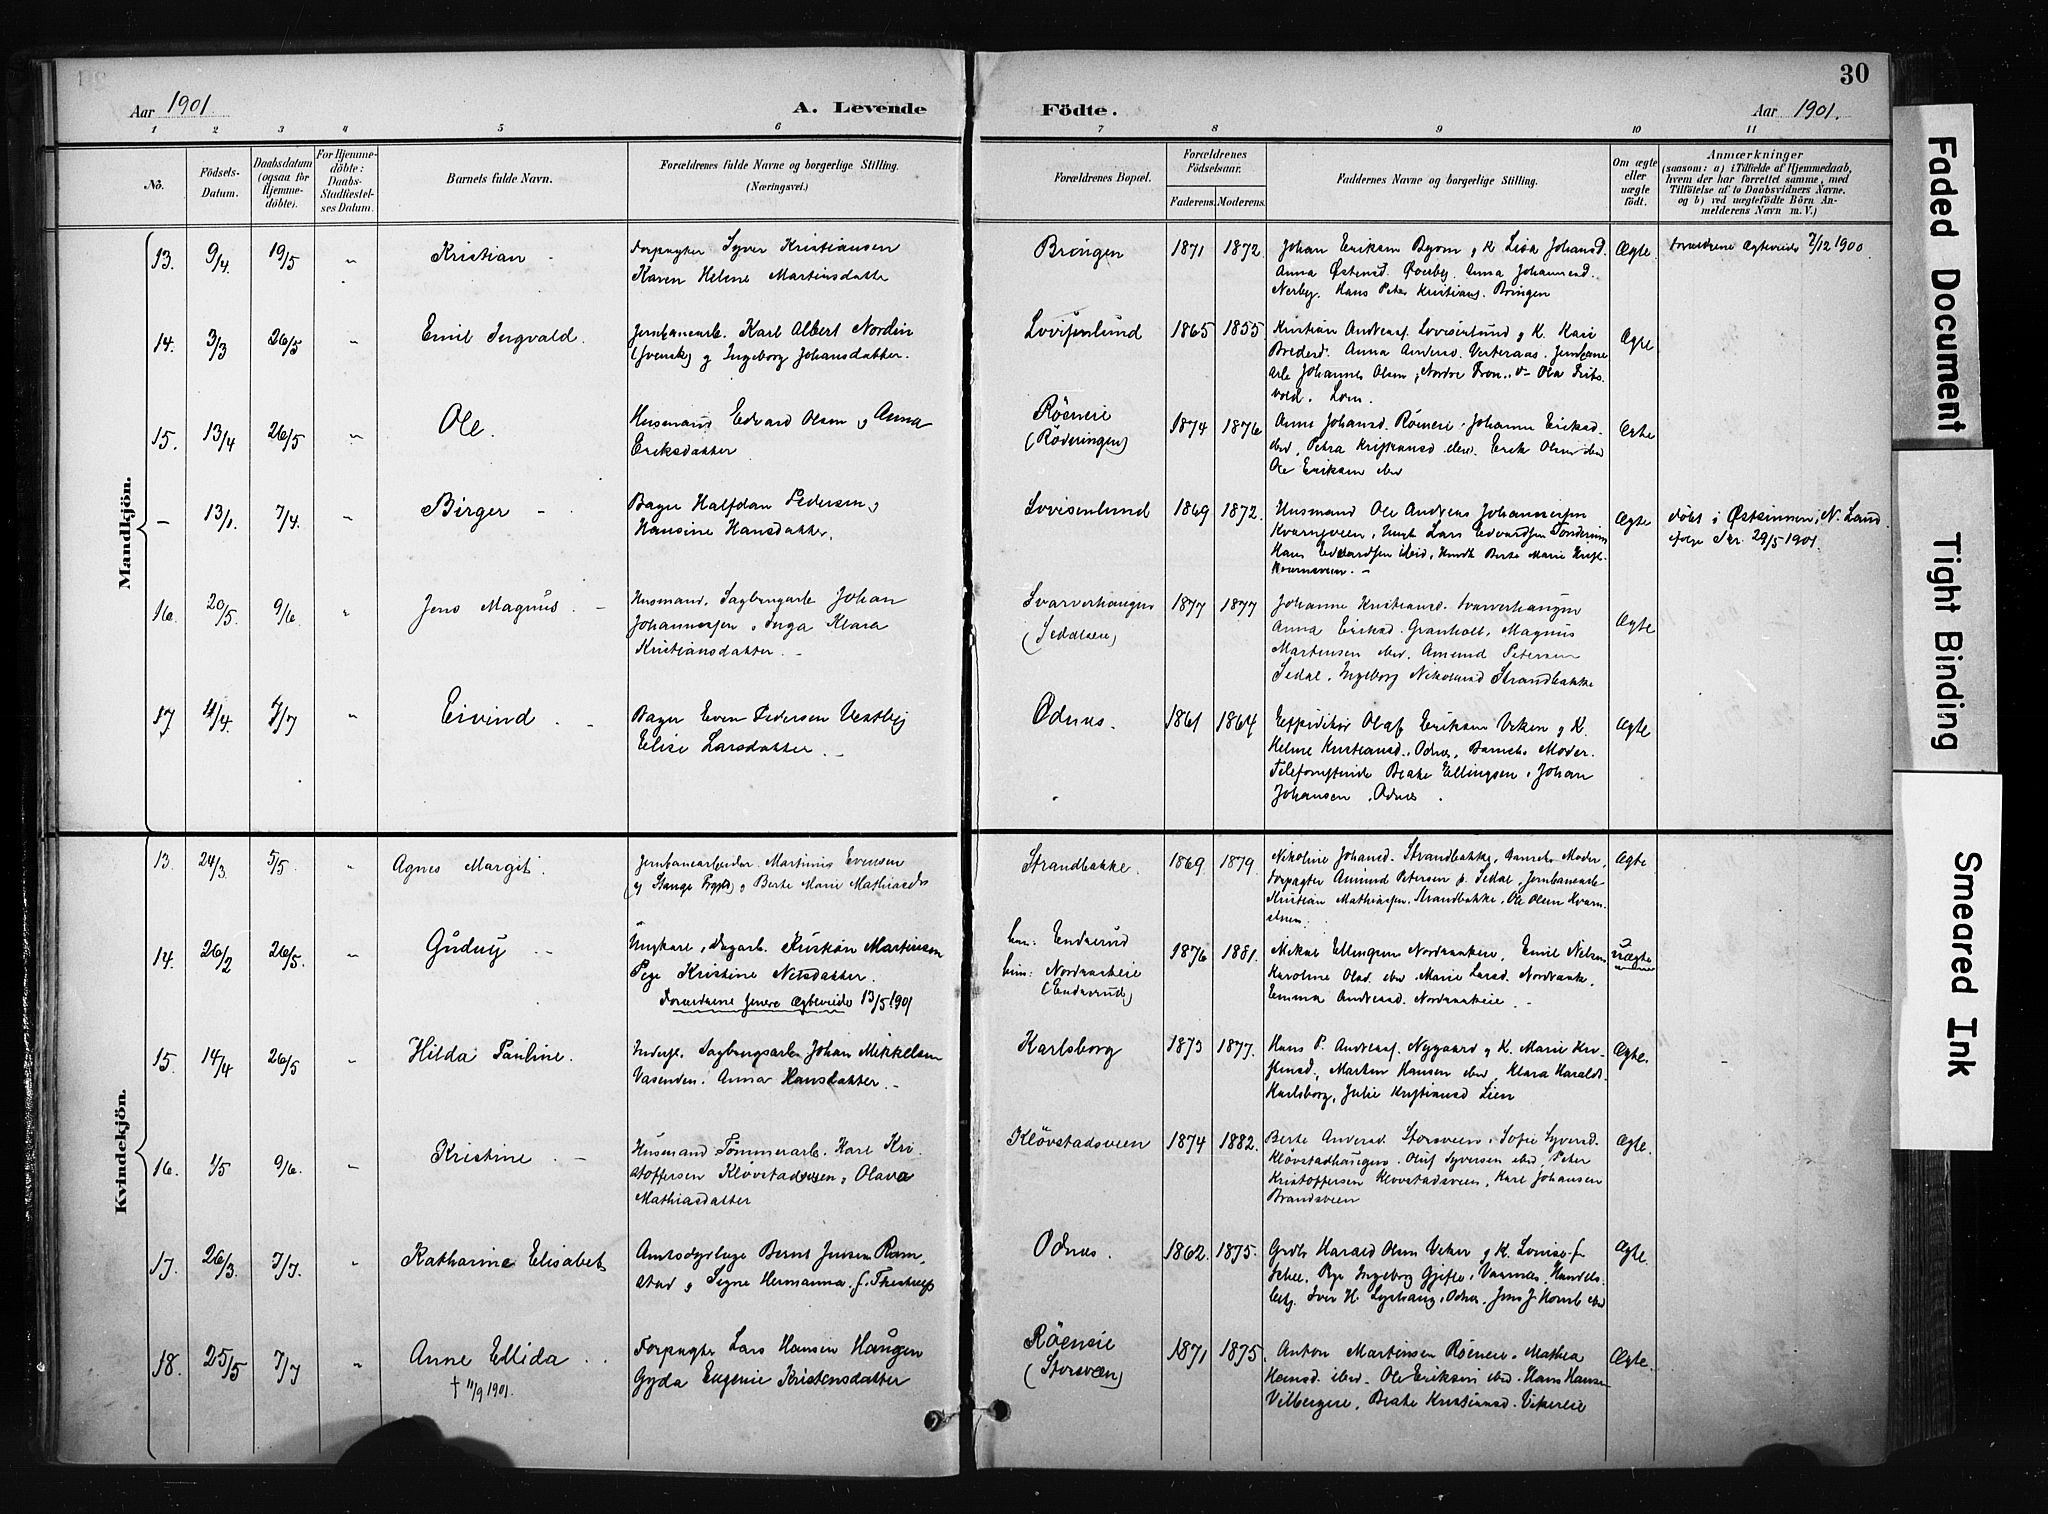 30
Aar 1901 A. Levende Födte. Aar 1901.
1 2 3 4 5 6 7 8 9 10 11
No.
Födsels-
Datum.
Daabsdatum
(ogsaa for
Hjemme-
döbte).
For Hjemme-
döbte:
Daabs-
Stadfæstel-
ses Datum.
Barnets fulde Navn.
Forældrenes fulde Navne og borgerlige Stilling.
(Næringsvei.)
Forældrenes Bopæl.
Forældrenes
Födselsaar.
Faderens. Moderens.
Faddernes Navne og borgerlige Stilling.
Om ægte
eller
uægte
født.
Anmærkninger
(saasom: a) i Tilfælde af Hjemmedaab,
hvem der har forrettet samme, med
Tilföielse af to Daabsvidners Navne,
og b) ved uægtefödte Börn An-
melderens Navn m. V.)
Mandkjön.
13. 9/4 19/5 " Kristian -
Forpagter Syver Kristiansen
Karen Helene Martinsdatter
Bröngen 1871 1872.
Johan Eriksen Byom g K. Lisa Johansd.
Anna Østensd. Øverby. Anna Johannesd.
Nerby. Hans Peter Kristians. Bringen
Ægte. Forældrene Ægteviede 7/12 1900
14. 3/3 26/5 " Emil Ingvald.
Jernbanearb. Karl Albert Nordin
(svensk) g Ingeborg Johansdatter.
Lovisenlund 1865 1855.
Kristian Andreass. Lovisenlund g K. Kari
Anna Andersd. Vesteraas. Jernbane
arb Johannes Olsen, Nordre Fron
Lom.
Ægte
15. 13/4 26/5 " Ole.
Husmand Edvard Olsen g Anna
Eriksdatter
Röeneie
(Röderingen)
1874 1876
Anne Johansd. Röeneie. Johanne Eriksd.
ibid, Petra Kristiansd ibid. Erik Olsen ibid
Ole Eriksen ibid
Ægte
- 13/1. 7/4. " Birger -
Bager Halfdan Pedersen g
Hansine Hansdatter.
Lovisenlund 1869 1872.
Husmand Ole Andreas Johannessen
Kvarnsveen, Ungk Lars Edvardsen
Hans Edvardsen ibid, Berte Marie
Kvarnsveen. -
Ægte döbt i Østsinnen, N. Land
ifølge Skr. 29/5 1901.
16. 20/5. 9/6. " Jens Magnus. -
Husmand, Sagbrugsarb Johan
Johannessen g Inga Klara
Kristiansdatter. -
Svarverhaugen
(Sedalseie)
1877 1877
Johanne Kristiansd. Svarverhaugen
Anna Eriksd. Granholt, Magnus
Martinsen ibid. Amund Petersen
Sedal, Ingeborg Nikolaisd Strandbakke
Ægte
17. 4/4. 7/7 " Eivind. -
Bager Even Pedersen Vestby
Elise Larsdatter. -
Odnæs. 1861 1864
Expeditör Olaf Eriksen Viken g K.
Helene Kristiansd. Odnæs, Barnets Moder.
Beate Ellingsen, Johan
Johansen, Odnæs.
Ægte
Kvindekjön.
13. 24/3. 5/5. " Agnes Margit.
Jernbanearbeider Martinus Evensen
g Berte Marie Mathiasdtr
Strandbakke. 1869. 1879.
Nikoline Johansd. Strandbakke, Barnets Moder
Forpagter Amund Petersen p. Sedal, Jernbanearb
Kristian Mathiassen, Strandbakke, Ole Olsen Kvarn-
Ægte.
14. 26/2 26/5. " Gudny -
Ungkarl, Dagarb. Kristian Martinsen
Pige Kristine Nilsdatter.
Forældrene senere Ægteviede 13/5 1901
han: Enderud
hun: Nordraakeie
(Enderud)
1876 1881.
Mikal Ellingsen Nordraakeie, Emil Nilsen
Karoline Olsd. ibid. Marie Larsd. Nordraake,
Emma Andreasd. Nordraakeie. -
Uægte
15. 14/4 26/5 " Hilda Pauline.
Inders. Sagbrugsarb. Johan Mikkelsen
Vasenden. Anna Hansdatter. -
Karlsborg 1873 1877.
Hans P. Andreass. Nygaard g K. Marie Kri-
stensd., Martin Hansen ibid, Klara Haralds.
Karlsborg, Julie Kristiansd Lien
Ægte.
16. 1/5 9/6. " Kristine. -
Husmand Tömmerarb. Karl Kri-
stoffersen Klövstadsveen, Olava
Mathiasdatter
Klövstadsveen 1874 1882.
Berte Andersd. Storsveen, Sofie Syversd.
Klövstadhaugen. Oluf Syversen ibid, Peter
Kristoffersen Klövstadsveen, Karl Johansen
Brandsveen
Ægte.
17. 26/3. 7/7. " Katharine Elisabet
Amtsdyrlæge Bernt Jensen Ram-
stad g Signe Hermanna f. Thistrup
Odnæs. 1862. 1875.
Grdbr Harald Olsen Viken g K. Louise f
Schee. Pige Ingeborg Gjefle, Handels-
Iver H. Odnæs, Jens J ibid
Ægte.
18. 25/5 7/7 " Anne Ellida. .
† 11/9 1901.
Forpagter Lars Hansen Haugen
Gyda Eugenie Kristensdatter
Röeneie
(Storsveen)
1871 1875.
Anton Martinsen Röeneie. Mathea
Hansd. ibid. Ole Eriksen ibid. Hans Hansen
Vilbergeie, Beate Kristiansd. Vikereie
Ægte.
Faded Document
Tight Binding
Smeared Ink